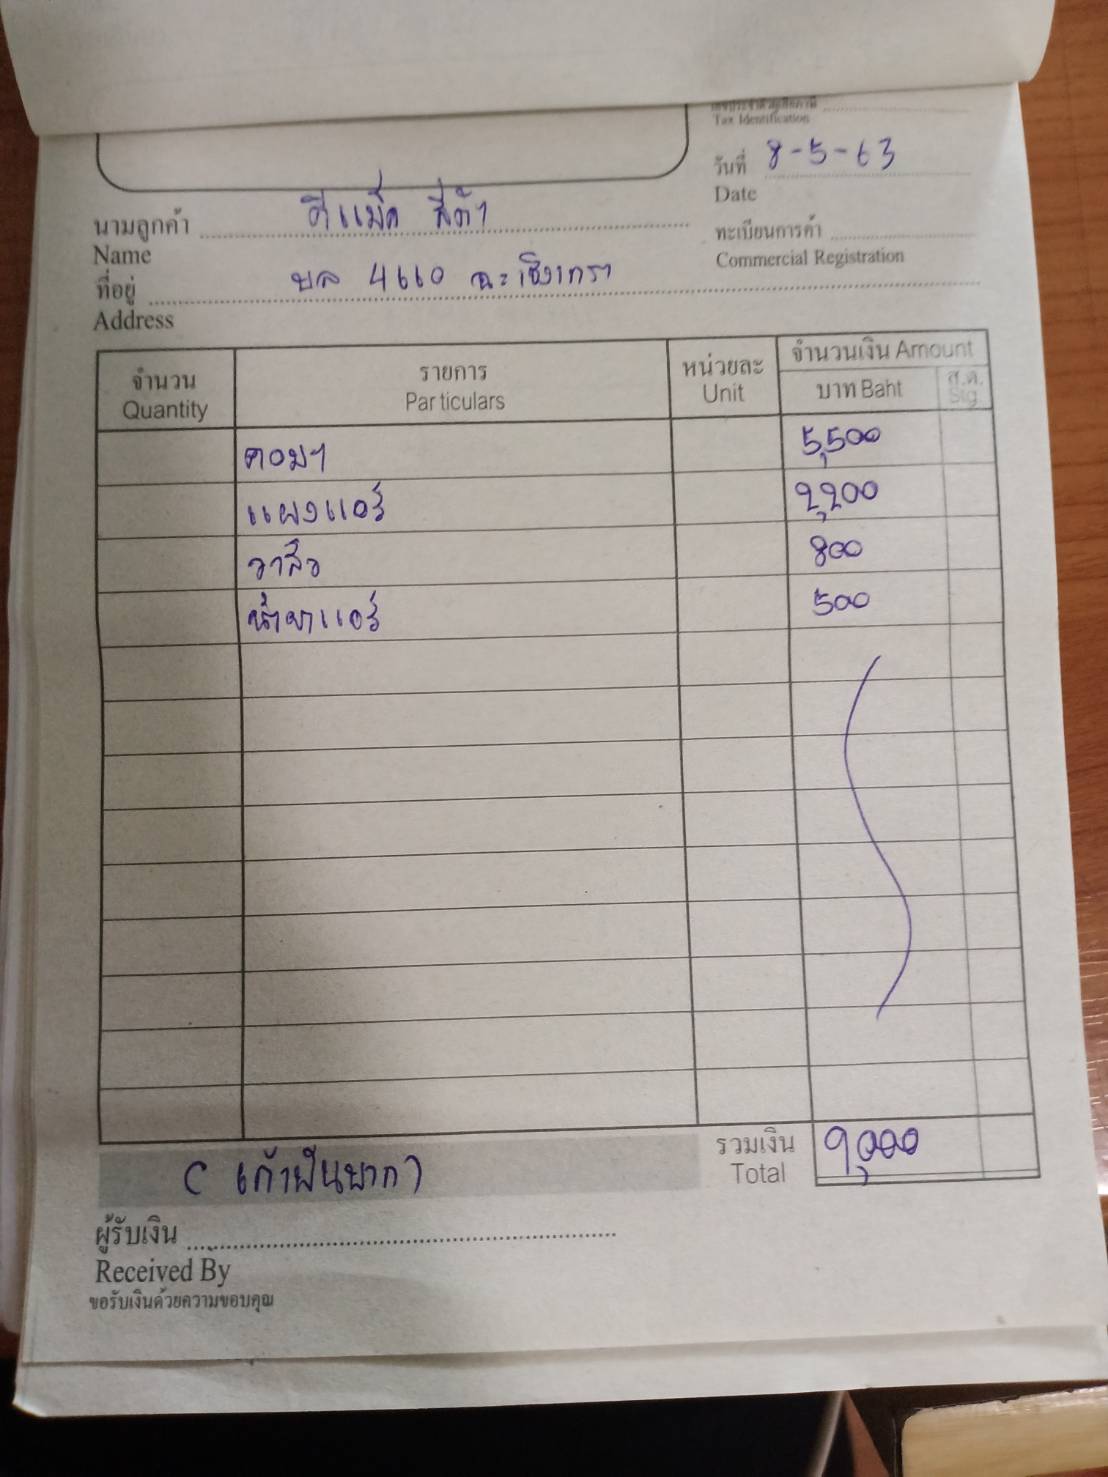 เลขประจำตัวผู้เสียภาษี
Tax Identification
วันที่ 8-5-63
Date
นามลูกค้า ดีแม็ค สีดำ
Name
ทะเบียนการค้า
Commercial Registration
ที่อยู่ บล 4660 ฉะเชิงเทรา
Address
จำนวน รายการ หน่วยละ จำนวนเงิน Amount
Quantity Particulars Unit บาท Baht ส.ต. Stg.
คอมฯ 5,500
แผงแอร์ 2,200
วาล์ว 800
น้ำยาแอร์ 500
รวมเงิน 9,000
Total
( เก้าพันบาท )
ผู้รับเงิน
Received By
ขอรับเงินด้วยความขอบคุณ